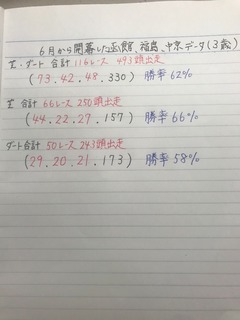 6月から開幕した函館、福島、中京データ(3歳)
芝・ダート 合計 116レース 493頭出走
(73.42.48.330) 勝率 62%
芝 合計 66レース 250頭出走
(44.22.27.157) 勝率 66%
ダート合計 50レース 243頭出走
(29.20.21.173) 勝率 58%